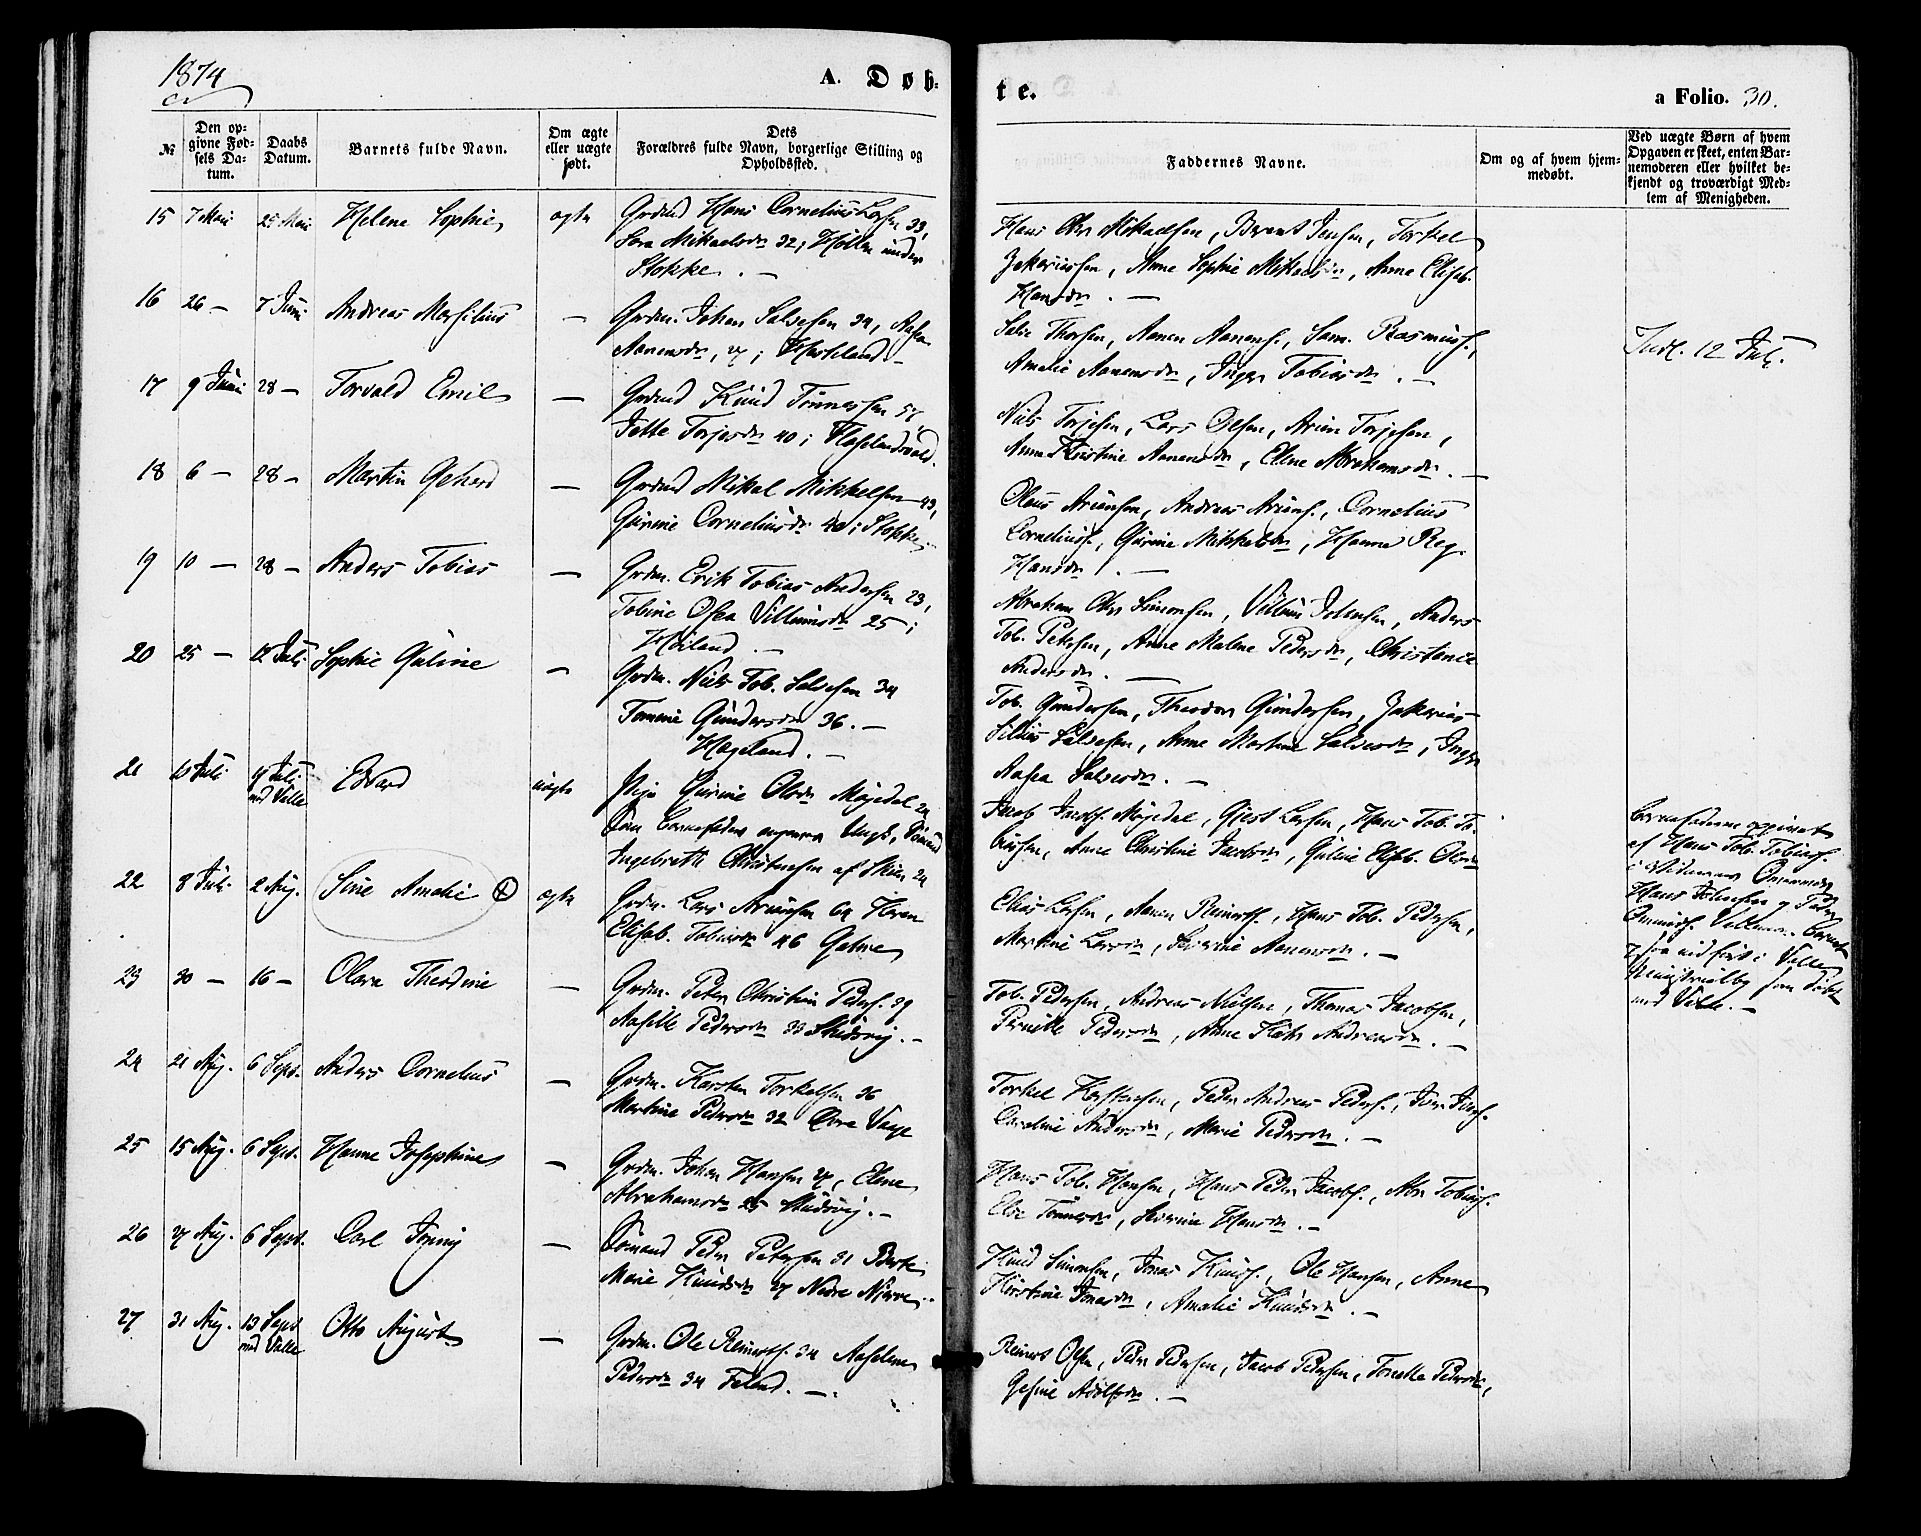 1874
A. Døb-
te.
a Folio. 30.
№
Den op-
givne Fød-
sels Da-
tum.
Daabs
Datum.
Barnets fulde Navn.
Om ægte
eller uægte
født.
Dets
Forældres fulde Navn, borgerlige Stilling og
Opholdssted.
Faddernes Navne.
Om og af hvem hjem-
medøbt.
Ved uægte Børn af hvem
Opgaven er skeet, enten Bar-
nemoderen eller hvilket be-
kjendt og troværdigt Med-
lem af Menigheden.
15 7 Mai 25 Mai Helene Sophie ægte Grdmd Hans Cornelius Larsen 33,
Sara Mikaelsdr 32, Hollen under
Stokke. —
Hans Chr Mikaelsen, Berent Jensen, Torkel
Zakariassen, Anne Sophie Mikaelsdr, Anne Elisab.
Hansdr. —
16 26 — 7 Juni Andreas Marsilius — Grdm. Johan Salvesen 34, Aasa
Aanensdr, 27, —
Salve Thorsen, Aanen Aanens., Sam. Rasmuss.,
Amalie Aanensdr, Inger Tobiasdr. —
Indl. 12 Jul.
17 9 Juni 28 — Torvald Emil — Grdmd Knud Tönnessen
Jette Torjesdr 40,
Niels Torjesen, Lars Olsen, Arien Torjesen,
Anne Kirstine Aanensdr, Elene Abrahamsdr. —
18 6 — 28 — Martin Gehard — Grdmd Mikal Mikkelsen 43,
Gurine Corneliusdr 40, Stokke
Oleus Ariansen, Andreas Arians., Cornelius
Corneliuss., Gurine Mikkelsdr, Hanne Reg.
Hansdr. —
19 10 — 28 — Anders Tobias — Grdm. Erik Tobias Andersen 23,
Tobine Osea Villumsdr 25,
Høiland. —
Abraham Chr Simonsen, Villum Johnsen, Anders
Tob. Petersen, Anne Malene Pedersdr, Christence
Andersdr. —
20 25 — 12 Juli Sophie Guline — Grdm. Niels Tob. Salvesen 34
Tomine Gundersdr 36. —
Hageland. —
Tob. Gundersen, Theodor Gundersen, Zakarias
Silius Salvesen, Anne Martine Salvesdr, Inger
Aasea Salvesdr. —
21 10 Juli Juli
ved Valle Edvard uægte Pige Gurine Olsdr Møgedal 24
Som Barnefader angives Ungk., Sömand
Ingebreth Christensen af Skien 24
Jacob Jacobs. Møgedal, Gjert Larsen, Hans Tob. To-
biassen, Anne Christine Jacobsdr, Guline Elisb. Olsdr
Barnefaderen opgivet
af Hans Tob. Tobiass.
Barnet
ført i Valle
Ministerialbog som Døbt
ved Valle. —
22 8 Juli 2 Aug. Sine Amalie ægte Grdm. Lars Ariansen 64 Karen
Elisab. Tobiasdr 46
Elias Larsen, Aanen Reierts., Hans Tob. Pedersen,
Martine Larsdr, Severine Aanensdr. —
23 30 — 16 — Olava Theodine — Grdm. Peter Christian Peders. 39
Aaselle Pedersdr 33 Skudevig. —
Tob. Pedersen, Andreas Nielsen, Thomas Jacobsen,
Pernille Pedersdr, Anne Andreasdr. —
24 21 Aug. 6 Sept. Anders Cornelius — Grdm. Karsten Torkelsen 36
Martine Pedersdr 32
Torkel Karstensen, Peder Andreas Peders., Iver Ivers.
Caroline Andersdr, Marie Pedersdr. —
25 15 Aug. 6 Sept. Hanne Josephine — Grdm. Johan Hansen 27, Elene
Abrahamsdr 25 Skudevig. —
Hans Tob. Hansen, Hans Peder Jacobs., Abr. Tobiass.
Else Tönnesdr, Severine Hansdr. —
26 27 Aug. 6 Sept. Carl Jonny — Sömand Peder Petersen 31 Berte
Marie Knudsdr 27 Nedre Njerve. —
Knud Simonsen, Jonas Knuds., Ole Hansen, Anne
Kirstine Jonasdr, Amalie Knudsdr. —
27 31 Aug. 13 Sept
ved Valle Otto August — Grdm. Ole Reierts. 34 Aaselene
Pedersdr 34 —
Reiert Olsen, Peder Pedersen, Jacob Pedersen, Tomille Pedersdr,
Gesine Adolfsdr. —